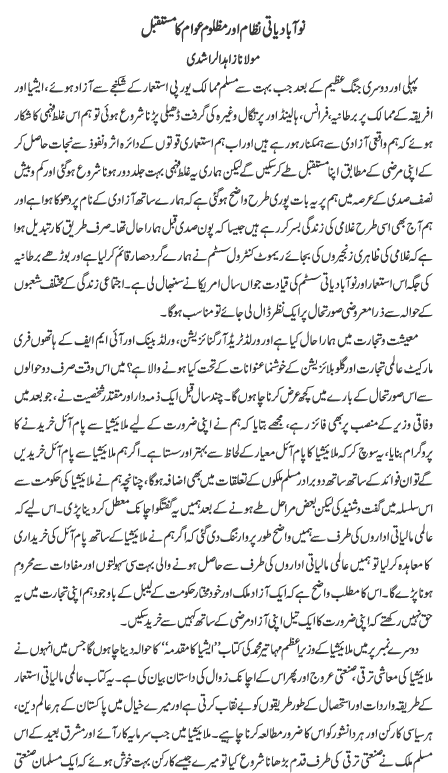 نو آبادیاتی نظام اور مظلوم عوام کا مستقبل
مولانا زاہد الراشدی
پہلی اور دوسری جنگ عظیم کے بعد جب بہت سے مسلم ممالک یورپی استعمار کے شکنجے سے آزاد ہوئے، ایشیا اور
افریقہ کے ممالک پر برطانیہ، فرانس، ہالینڈ اور پرتگال وغیرہ کی گرفت ڈھیلی پڑنا شروع ہوئی تو ہم اس غلط فہمی کا شکار
ہوئے کہ ہم واقعی آزادی سے ہمکنار ہو رہے ہیں اور اب ہم استعماری قوتوں کے دائرہ اثر و نفوذ سے نجات حاصل کر
کے اپنی مرضی کے مطابق اپنا مستقبل طے کر سکیں گے لیکن ہماری یہ غلط فہمی بہت جلد دور ہونا شروع ہو گئی اور کم و بیش
نصف صدی کے عرصہ میں ہم پر یہ بات پوری طرح واضح ہو گئی ہے کہ ہمارے ساتھ آزادی کے نام پر دھوکا ہوا ہے اور
ہم آج بھی اسی طرح غلامی کی زندگی بسر کر رہے ہیں جیسا کہ پون صدی قبل ہمارا حال تھا۔ صرف طریق کار تبدیل ہوا
ہے کہ غلامی کی ظاہری زنجیروں کی بجائے ریموٹ کنٹرول سسٹم نے ہمارے گرد حصار قائم کر لیا ہے اور بوڑھے برطانیہ
کی جگہ اس استعمار اور نو آبادیاتی سسٹم کی قیادت جواں سال امریکا نے سنبھال لی ہے۔ اجتماعی زندگی کے مختلف شعبوں
کے حوالہ سے ذرا معروضی صورتحال پر ایک نظر ڈال لی جائے تو مناسب ہوگا۔
معیشت و تجارت میں ہمارا حال کیا ہے اور ورلڈ ٹریڈ آرگنائزیشن، ورلڈ بینک اور آئی ایم ایف کے ہاتھوں فری
مارکیٹ، عالمی تجارت اور گلوبلائزیشن کے خوشنما عنوانات کے تحت کیا ہونے والا ہے؟ میں اس وقت صرف دو حوالوں
سے اس صورتحال کے بارے میں کچھ عرض کرنا چاہوں گا۔ چند سال قبل ایک ذمہ دار اور مقتدر شخصیت نے، جو بعد میں
وفاقی وزیر کے منصب پر بھی فائز رہے، مجھے بتایا کہ ہم نے اپنی ضرورت کے لیے ملائیشیا سے پام آئل خریدنے کا
پروگرام بنایا، یہ سوچ کر کہ ملائیشیا کا پام آئل معیار کے لحاظ سے بہتر اور سستا ہے۔ اگر ہم ملائیشیا سے پام آئل خریدیں
گے تو ان فوائد کے ساتھ ساتھ دو برادر مسلم ملکوں کے تعلقات میں بھی اضافہ ہوگا، چنانچہ ہم نے ملائیشیا کی حکومت سے
اس سلسلہ میں گفت و شنید کی لیکن بعض مراحل طے ہونے کے بعد ہمیں یہ گفتگو اچانک معطل کر دینا پڑی۔ اس لیے کہ
عالمی مالیاتی اداروں کی طرف سے ہمیں واضح طور پر وارننگ دی گئی کہ اگر ہم نے ملائیشیا کے ساتھ پام آئل کی خریداری
کا معاہدہ کر لیا تو ہمیں عالمی مالیاتی اداروں کی طرف سے حاصل ہونے والی بہت سی سہولتوں اور مفادات سے محروم
ہونا پڑے گا۔ اس کا مطلب واضح ہے کہ ایک آزاد ملک اور خود مختار حکومت کے لیبل کے باوجود ہم اپنی تجارت میں یہ
حق نہیں رکھتے کہ اپنی ضرورت کا ایک تیل اپنی آزاد مرضی کے ساتھ کہیں سے خرید سکیں۔
دوسرے نمبر پر میں ملائیشیا کے وزیر اعظم مہاتیر محمد کی کتاب ’’ایشیا کا مقدمہ‘‘ کا حوالہ دینا چاہوں گا جس میں انہوں نے
ملائیشیا کی معاشی ترقی، صنعتی عروج اور پھر اس کے اچانک زوال کی داستان بیان کی ہے۔ یہ کتاب عالمی مالیاتی استعمار
کے طریقہ واردات اور استحصال کے طور طریقوں کو بے نقاب کرتی ہے اور میرے خیال میں پاکستان کے ہر عالم دین،
ہر سیاسی کارکن اور ہر دانشور کو اس کا ضرور مطالعہ کرنا چاہیے۔ ملائیشیا میں جب سرمایہ کار آئے اور مشرق بعید کے اس
مسلم ملک نے صنعتی ترقی کی طرف قدم بڑھانا شروع کیا تو میرے جیسے کارکن بہت خوش ہوئے کہ ایک مسلمان صنعتی